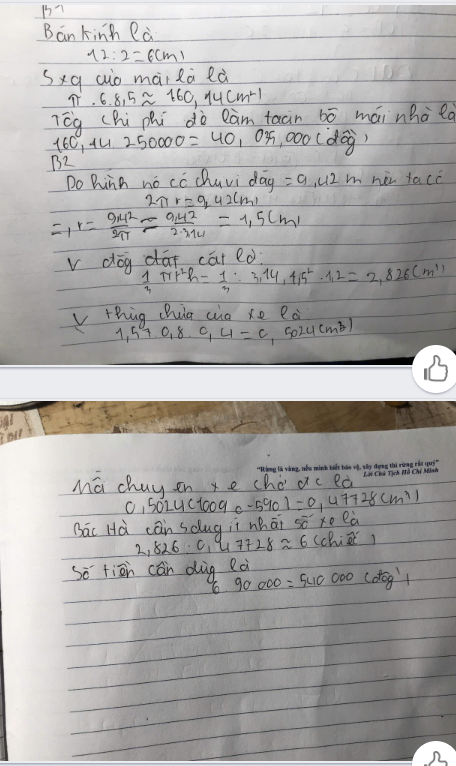 B1
Bán kính là
12:2=6(m)
Sxq của mái là là
π.6.8,5≈160,14(m²)
Tổg chi phí để làm toàn bộ mái nhà là
160,14 250000=40,035,000(đồg)
B2
Do hình nó có chu vi đáy=9,42 m nên ta có
2πr=9,42(m)
=,r=9,42/2π≈9,42/2.3,14=1,5(m)
V đốg đát cát là:
1/3 πr²h=1/3.3,14.1,5².1,2=2,826(m³)
V thùg chứa của xe là
1,57.0,8.0,4=0,5024(m³)
"Rừng là vàng, nếu mình biết bảo vệ, xây dựng thì rừng rất quý"
Lời Chủ Tịch Hồ Chí Minh
Mỗi chuyến xe chở đc là
0,5024(100%-5%)=0,47728(m³)
Bác Hà cần sdug ít nhất số xe là
2,826:0,47728≈6(chiếc)
Số tiền cần dùg là
6 90 000=540 000(đồg)